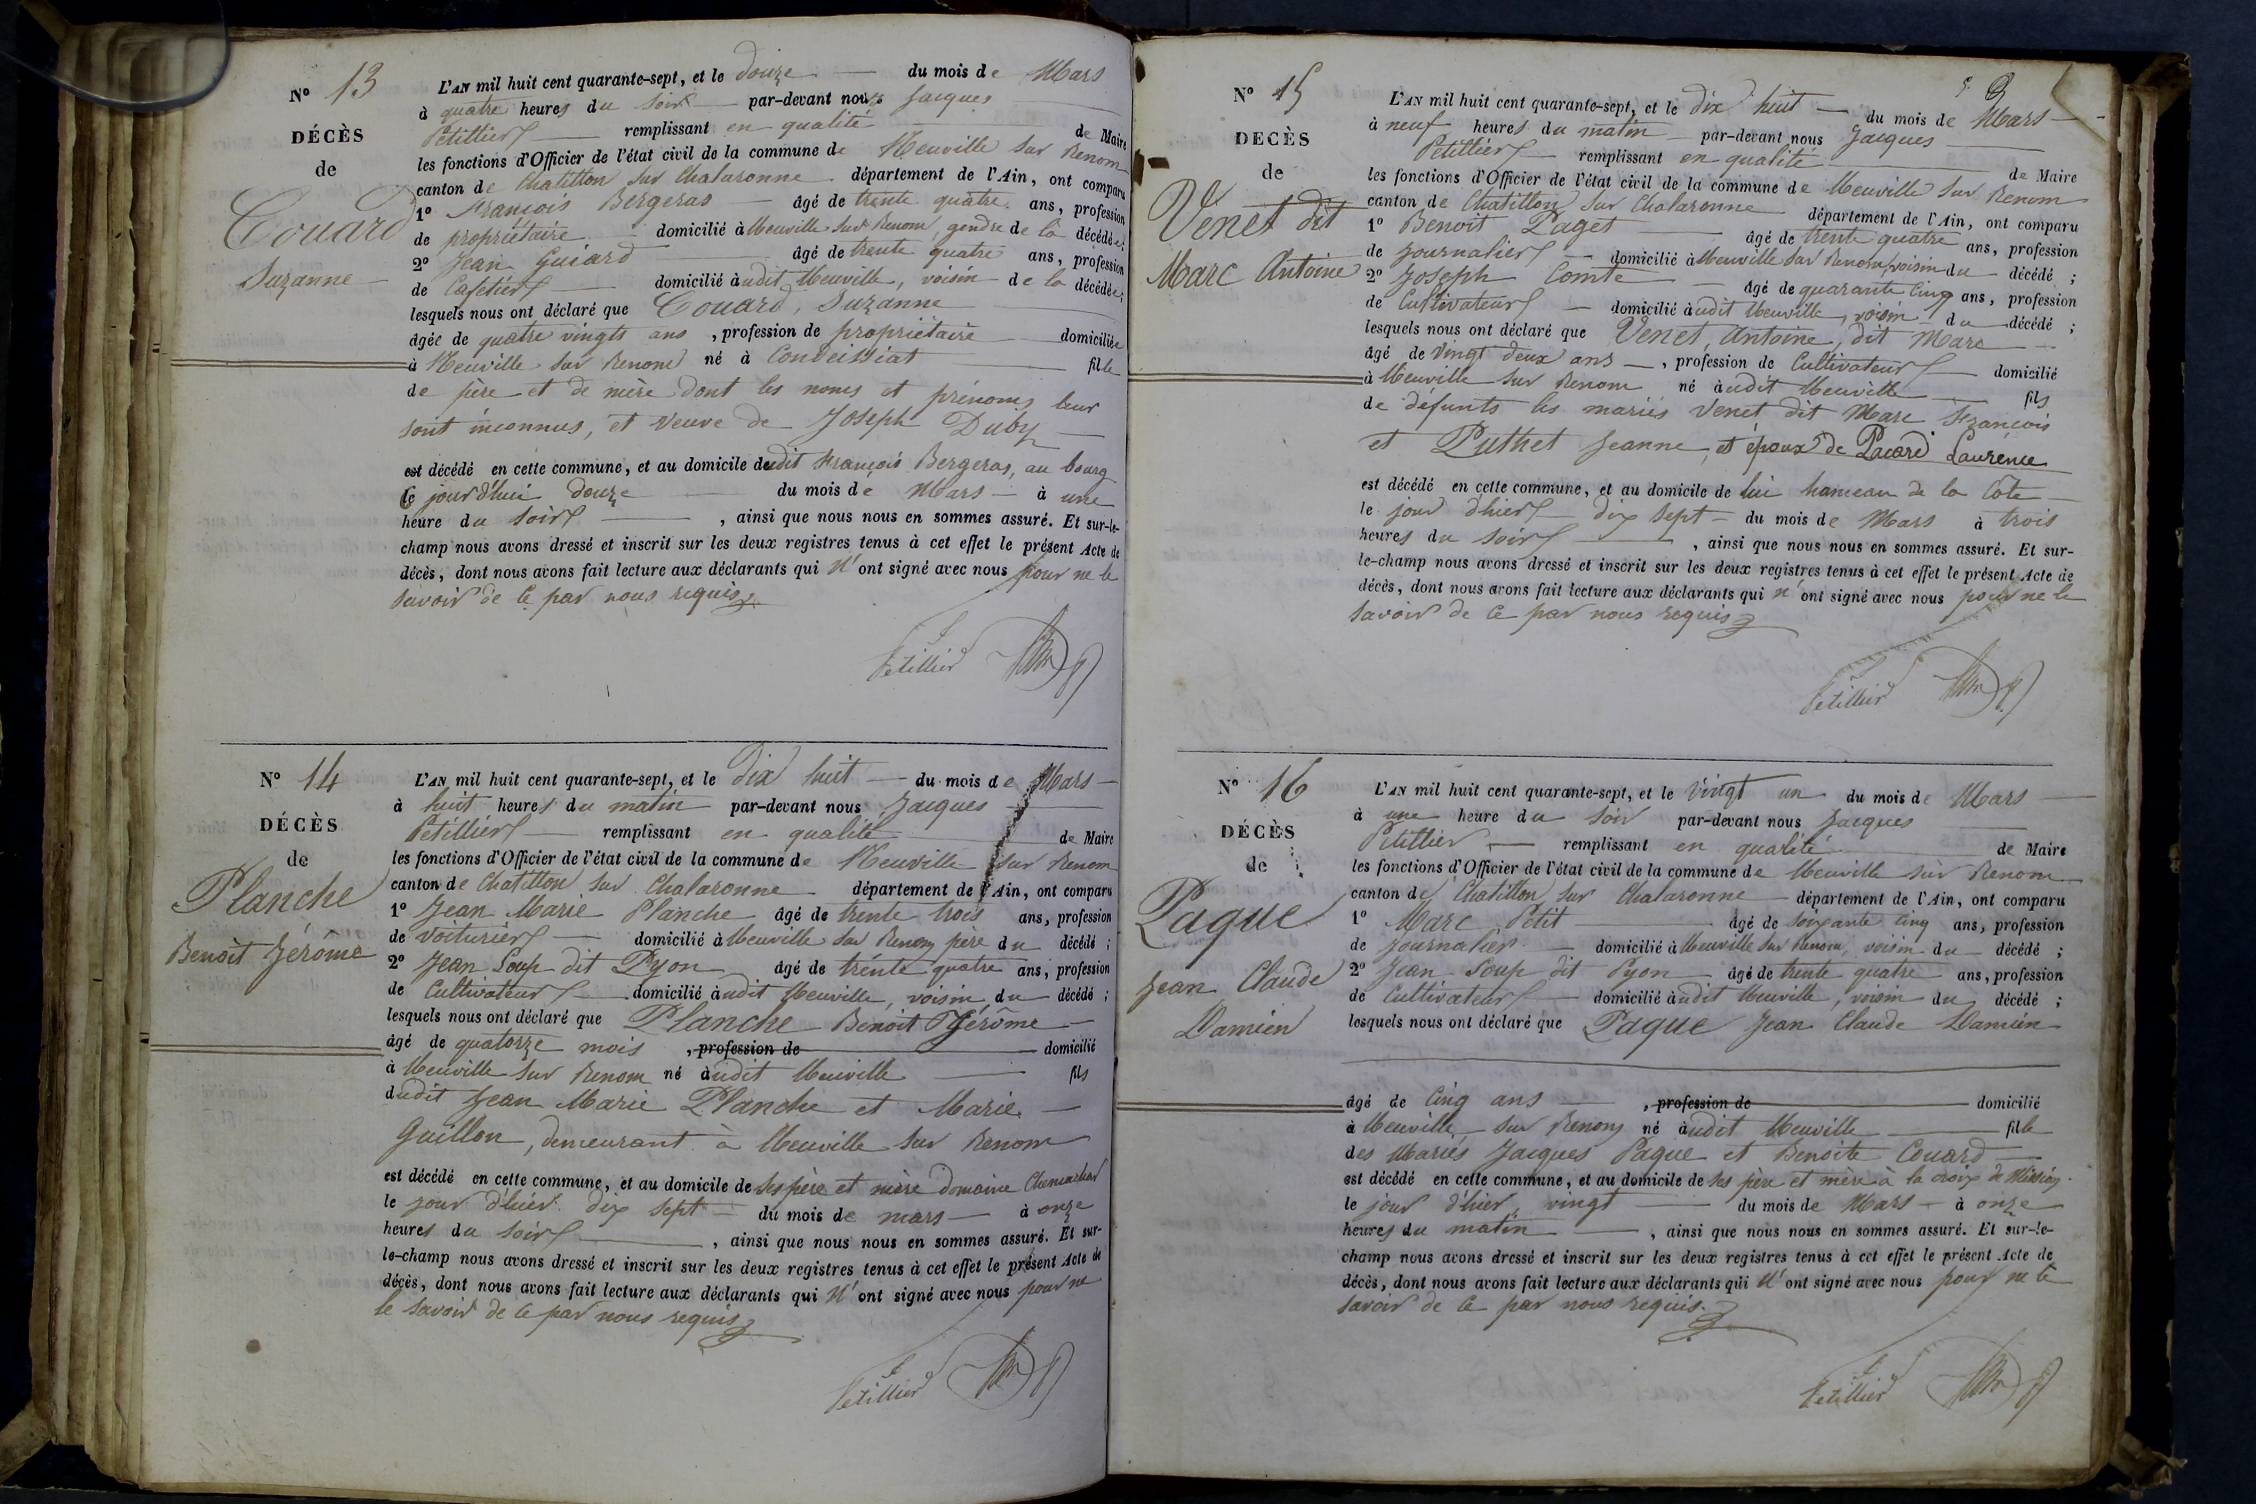 N° 13
DÉCÈS
de
Couard
Suzanne
L'AN mil huit cent quarante-sept, et le douze du mois de Mars
à quatre heures du soir par-devant nous Jacques
Petillier remplissant en qualité de Maire
les fonctions d'Officier de l'état civil de la commune de Neuville sur Renom
canton de Chatillon sur Chalaronne département de l'Ain, ont comparu
1° François Bergeras âgé de trente quatre ans, profession
de propriétaire domicilié à Neuville sur Renom, gendre de la décédée;
2° Jean Guiard âgé de trente quatre ans, profession
de Cafetier domicilié audit Neuville, voisin de la décédée;
lesquels nous ont déclaré que Couard, Suzanne
âgée de quatre vingts ans, profession de propriétaire domiciliée
à Neuville sur Renom né à Condeissiat fille
de père et de mère dont les noms et prénoms leur
sont inconnus, et veuve de Joseph Duby
est décédé en cette commune, et au domicile dudit François Bergeras, au bourg
le jourd'hui douze du mois de Mars à une
heure du soir, ainsi que nous nous en sommes assuré. Et sur-le-
champ nous avons dressé et inscrit sur les deux registres tenus à cet effet le présent Acte de
décès, dont nous avons fait lecture aux déclarants qui n'ont signé avec nous pour ne le
savoir de ce par nous requis
Petillier
N° 14
DÉCÈS
de
Planche
Benoit Jérôme
L'AN mil huit cent quarante-sept, et le dix huit du mois de Mars
à huit heures du matin par-devant nous Jacques
Petillier remplissant en qualité de Maire
les fonctions d'Officier de l'état civil de la commune de Neuville sur Renom
canton de Chatillon sur Chalaronne département de l'Ain, ont comparu
1° Jean Marie Planche âgé de trente trois ans, profession
de voiturier domicilié à Neuville sur Renom père du décédé;
2° Jean Loup dit Pyon âgé de trente quatre ans, profession
de Cultivateur domicilié audit Neuville, voisin du décédé;
lesquels nous ont déclaré que Planche Benoit Jérôme
âgé de quatorze mois, profession de domicilié
à Neuville sur Renom né audit Neuville fils
dudit Jean Marie Planche et Marie
Guillon, demeurant à Neuville sur Renom
est décédé en cette commune, et au domicile de ses père et mère domaine
le jour d'hier dix sept du mois de mars à onze
heures du soir, ainsi que nous nous en sommes assuré. Et sur-
le-champ nous avons dressé et inscrit sur les deux registres tenus à cet effet le présent Acte de
décès, dont nous avons fait lecture aux déclarants qui n'ont signé avec nous pour ne
le savoir de ce par nous requis
Petillier
N° 15
DÉCÈS
de
Venet dit
Marc Antoine
L'AN mil huit cent quarante-sept, et le dix huit du mois de Mars
à neuf heures du matin par-devant nous Jacques
Petillier remplissant en qualité de Maire
les fonctions d'Officier de l'état civil de la commune de Neuville sur Renom
canton de Chatillon sur Chalaronne département de l'Ain, ont comparu
1° Benoit Paget âgé de trente quatre ans, profession
de journalier domicilié à Neuville sur Renom, voisin du décédé;
2° Joseph Comte âgé de quarante cinq ans, profession
de Cultivateur domicilié audit Neuville, voisin du décédé;
lesquels nous ont déclaré que Venet, Antoine, dit Marc
âgé de vingt deux ans, profession de Cultivateur domicilié
à Neuville sur Renom né audit Neuville fils
de défunts les mariés Venet dit Marc François
et Puthet Jeanne, et époux de Pacard Laurence
est décédé en cette commune, et au domicile de lui hameau de la Côte
le jour d'hier dix sept du mois de Mars à trois
heures du soir, ainsi que nous nous en sommes assuré. Et sur-
le-champ nous avons dressé et inscrit sur les deux registres tenus à cet effet le présent Acte de
décès, dont nous avons fait lecture aux déclarants qui n'ont signé avec nous pour ne le
savoir de ce par nous requis
Petillier
N° 16
DÉCÈS
de
Paque
Jean Claude
Damien
L'AN mil huit cent quarante-sept, et le vingt un du mois de Mars
à une heure du soir par-devant nous Jacques
Petillier remplissant en qualité de Maire
les fonctions d'Officier de l'état civil de la commune de Neuville sur Renom
canton de Chatillon sur Chalaronne département de l'Ain, ont comparu
1° Marc Petit âgé de soixante cinq ans, profession
de journalier domicilié à Neuville sur Renom, voisin du décédé;
2° Jean Loup dit Pyon âgé de trente quatre ans, profession
de Cultivateur domicilié audit Neuville, voisin du décédé;
lesquels nous ont déclaré que Paque Jean Claude Damien
âgé de cinq ans, profession de domicilié
à Neuville sur Renom né audit Neuville fils
des mariés Jacques Paque et Benoite Couard
est décédé en cette commune, et au domicile de ses père et mère à la croix de
le jour d'hier, vingt du mois de Mars à onze
heures du matin, ainsi que nous nous en sommes assuré. Et sur-le-
champ nous avons dressé et inscrit sur les deux registres tenus à cet effet le présent Acte de
décès, dont nous avons fait lecture aux déclarants qui n'ont signé avec nous pour ne le
savoir de ce par nous requis.
Petillier